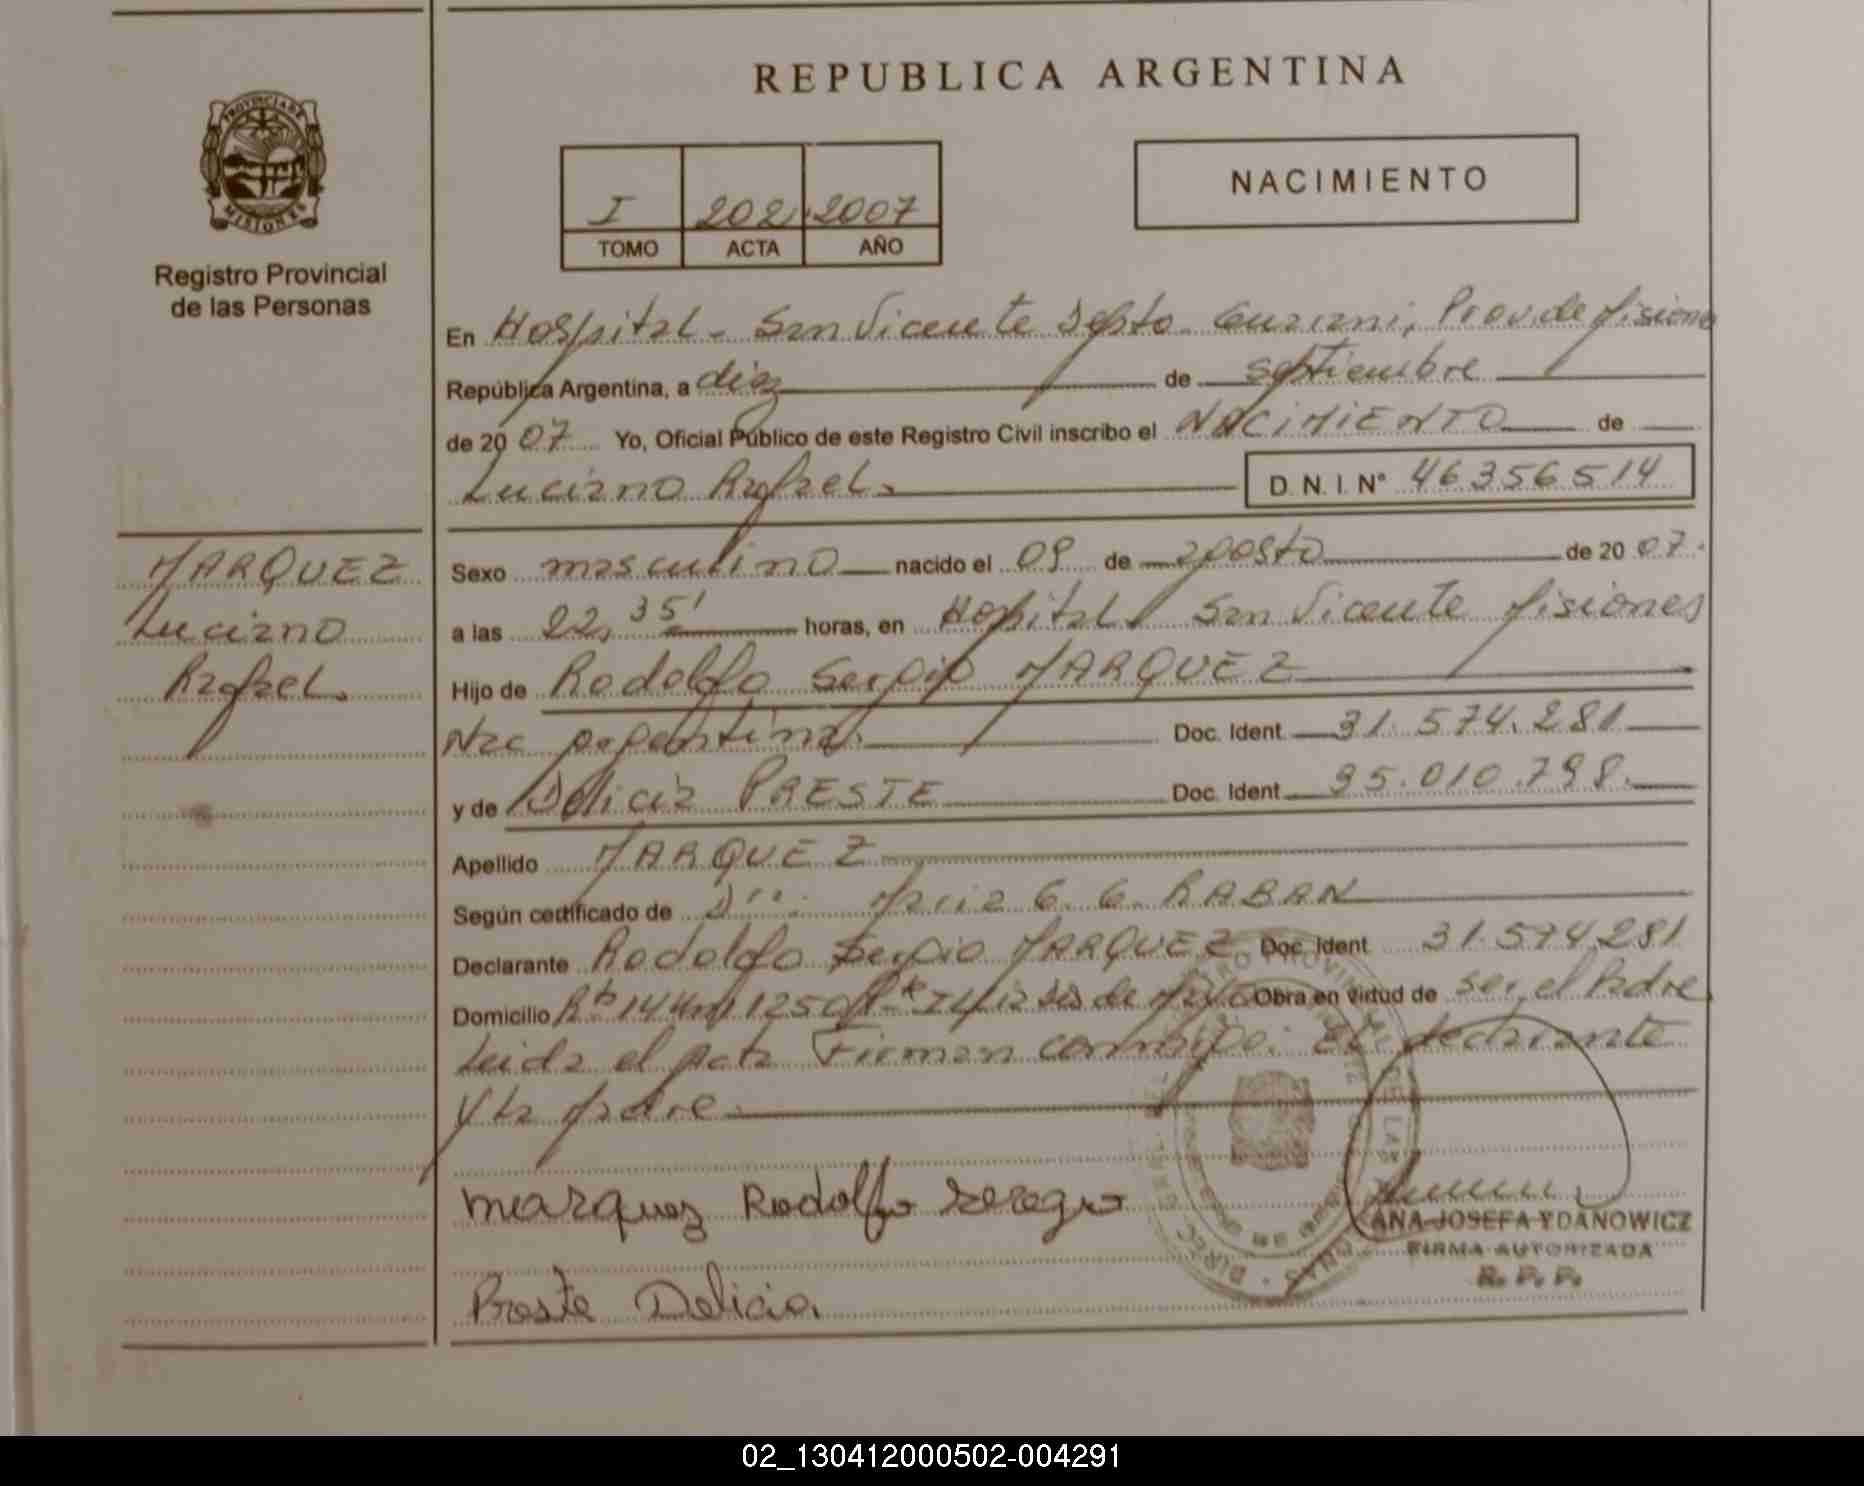 REPUBLICA ARGENTINA
PROVINCIA DE
MISIONES
Registro Provincial
de las Personas
I 202 2007
TOMO ACTA AÑO
NACIMIENTO
En Hospital - San Vicente Depto Guarani, Prov. de Misiones
República Argentina, a diez de septiembre
de 2007 Yo, Oficial Público de este Registro Civil inscribo el NACIMIENTO de
Luciano Rafael. D. N. I. N° 46356514
MARQUEZ
Luciano
Rafael.
Sexo masculino nacido el 09 de agosto de 2007.
a las 22,35' horas, en Hospital San Vicente Misiones
Hijo de Rodolfo Sergio MARQUEZ
Nac argentina. Doc. Ident 31.574.281
y de Delicia PRESTE Doc. Ident 95.010.798.
Apellido MARQUEZ
Según certificado de Dra. Maria G. G. RABAN
Declarante Rodolfo Sergio MARQUEZ Doc. Ident 31.574.281
Domicilio de Mayo Obra en virtud de ser el Padre
Leida el acta Firman conmigo: El declarante
y la Madre
marquez Rodolfo
Preste Delicia.
ANA JOSEFA YDANOWICZ
FIRMA AUTORIZADA
R. P. P.
02_130412000502-004291